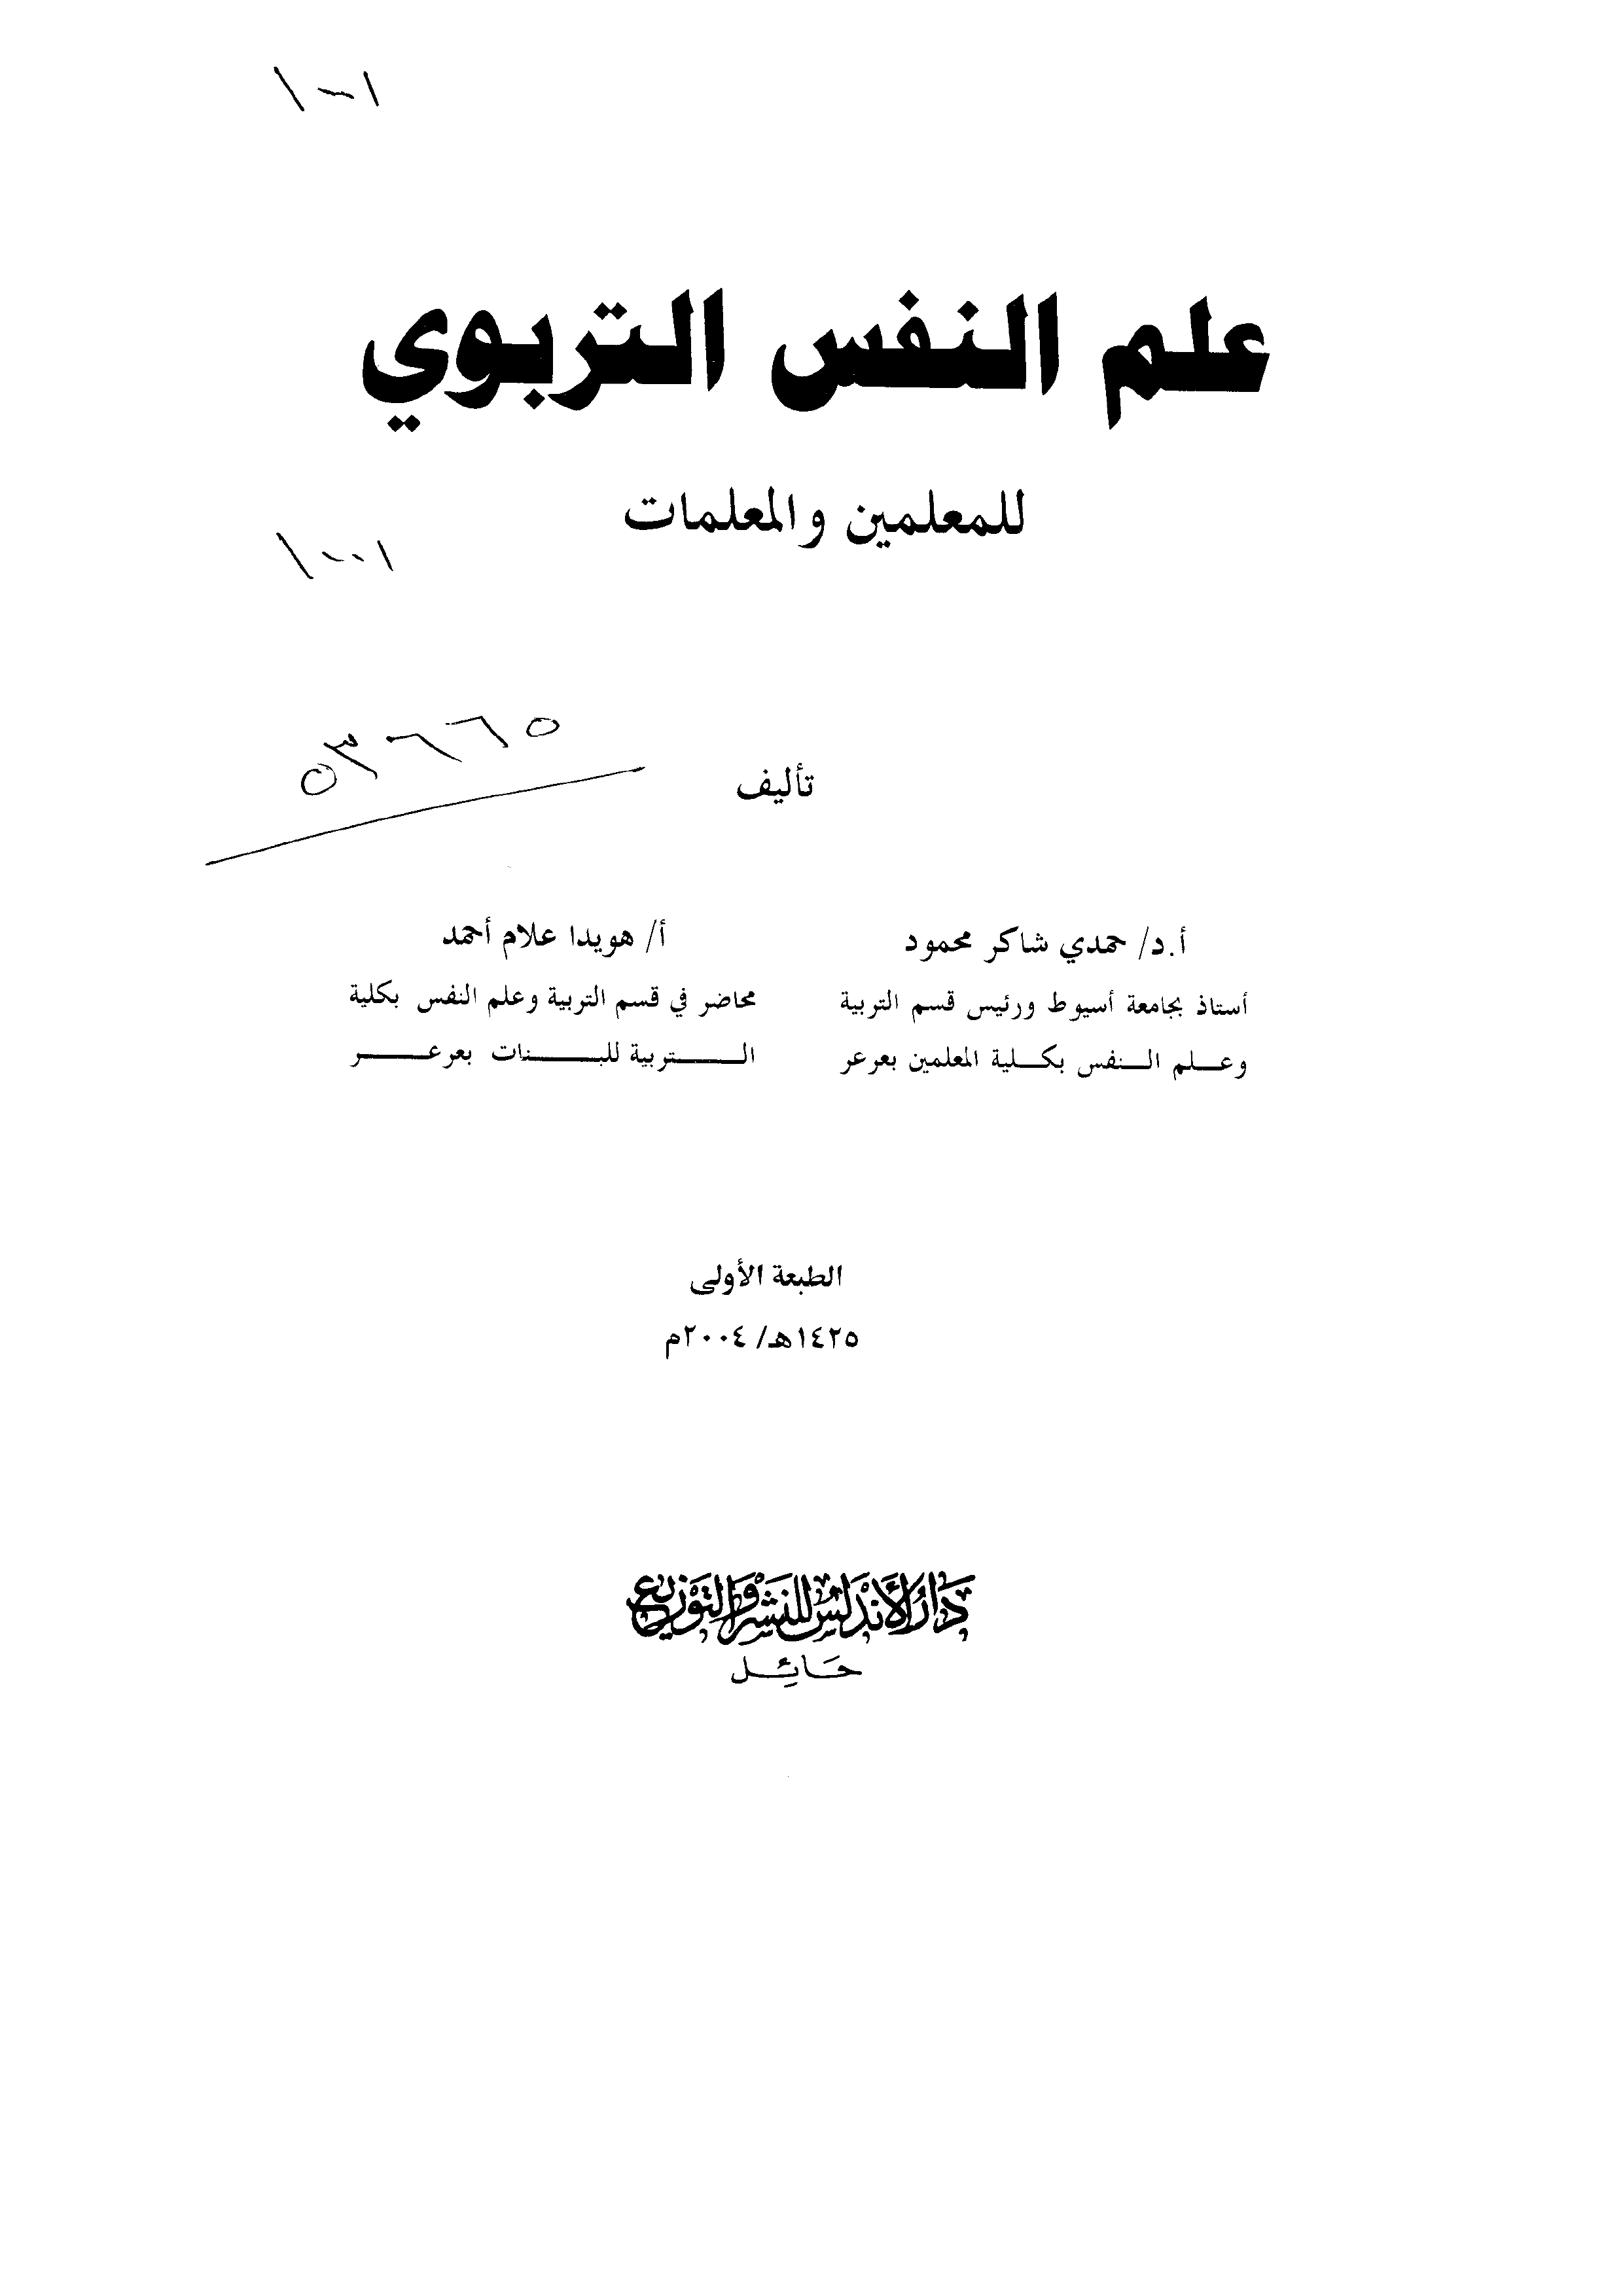 علم النفس التربوي
للمعلمين والمعلمات
٥٣٦٦٥
تأليف
أ.د/ حمدي شاكر محمود
أستاذ بجامعة أسيوط ورئيس قسم التربية
وعلم النفس بكلية المعلمين بعرعر
أ/ هويدا علام أحمد
محاضر في قسم التربية وعلم النفس بكلية
التربية للبنات بعرعر
الطبعة الأولى
١٤٢٥هـ/ ٢٠٠٤م
دار الأندلس للنشر والتوزيع
حائل